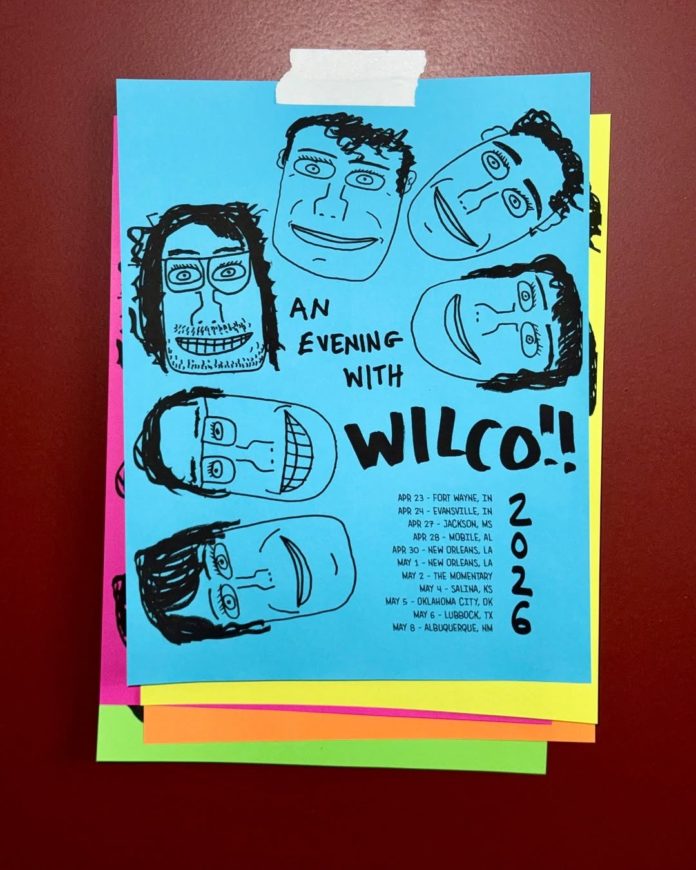 AN
EVENING
WITH
WILCO!!
APR 23 - FORT WAYNE, IN
APR 24 - EVANSVILLE, IN
APR 27 - JACKSON, MS
APR 28 - MOBILE, AL
APR 30 - NEW ORLEANS, LA
MAY 1 - NEW ORLEANS, LA
MAY 2 - THE MOMENTARY
MAY 4 - SALINA, KS
MAY 5 - OKLAHOMA CITY, OK
MAY 6 - LUBBOCK, TX
MAY 8 - ALBUQUERQUE, NM
2026